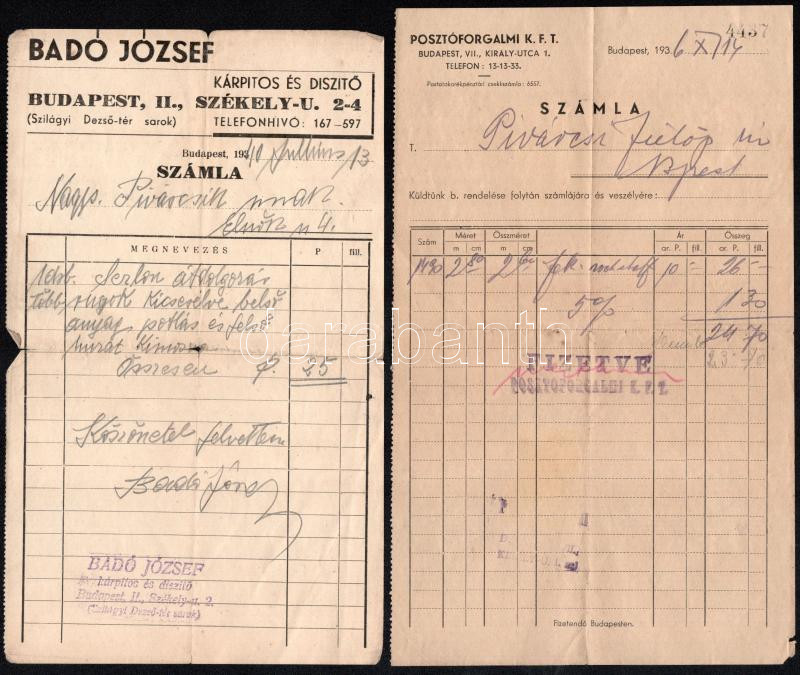 BADÓ JÓZSEF
KÁRPITOS ÉS DISZITŐ
BUDAPEST, II., SZÉKELY-U. 2-4
(Szilágyi Dezső-tér sarok)
TELEFONHIVÓ: 167-597
Budapest, 1940 Julius 13
SZÁMLA
Nags. Pivárcsik urnak.
Elnök u 4.
MEGNEVEZÉS P fill.
1 drb. Sezlon átdolgozás
rugók kicserélve belső
anyag potlás és felső
huzát
Összesen P. 25
Köszönetel felvettem
Badó József
BADÓ JÓZSEF
kárpitos és diszitő
Budapest, II., Székely-u. 2.
(Szilágyi Dezső-tér sarok)
4437
POSZTÓFORGALMI K. F. T.
BUDAPEST, VII., KIRÁLY-UTCA 1.
TELEFON: 13-13-33.
Postatakarékpénztári csekkszámla: 6557.
Budapest, 1936 XI/14
SZÁMLA
T. Pivárcsi Fülöp úr
Bpest
Küldtünk b. rendelése folytán számlájára és veszélyére:
Szám Méret Összméret Ár Összeg
m cm m cm ar. P. fill. ar. P. fill.
1430 2 80 2 60 fek. 10 - 26 -
5% 1 30
24 70
23 70
FIZETVE
POSZTÓFORGALMI K. F. T.
Fizetendő Budapesten.
darabanth